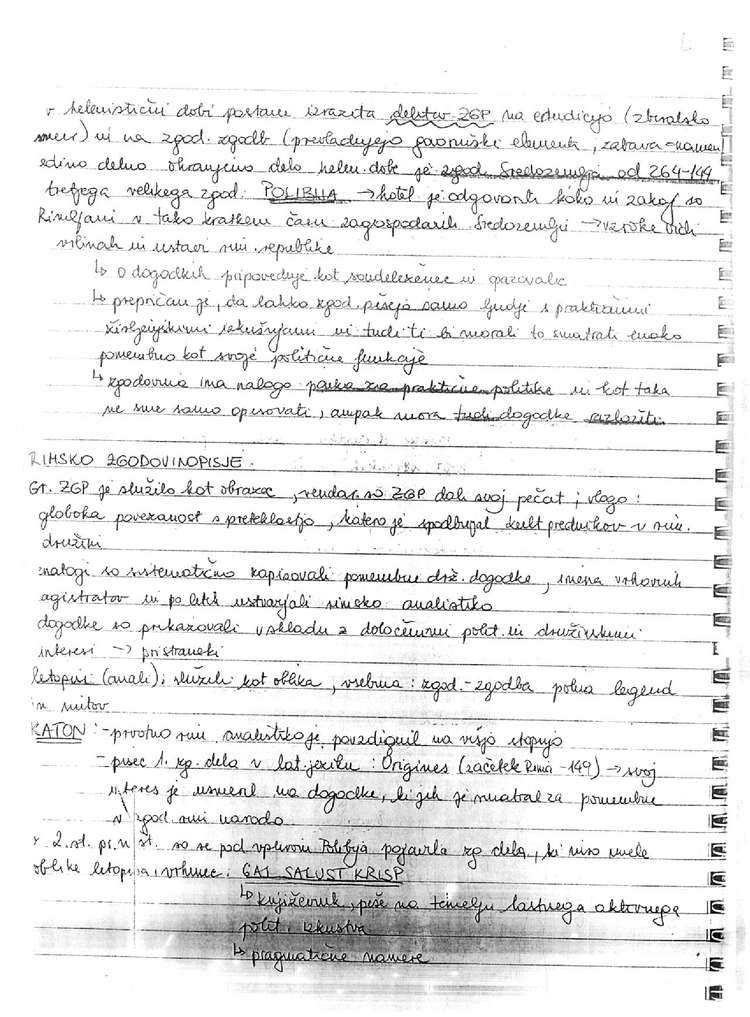 v helenistični dobi postane izrazita delitev ZGP na erudicijo (zbiralsko
smer) in na zgod. zgodb (prevladujejo govorniški elementi, zabava = namen
edino delno ohranjeno delo helen. dobe je zgod. Sredozemlja od 264-144
tretjega velikega zgod. POLIBIJA → hotel je odgovoriti kako in zakaj so
Rimljani v tako kratkem času zagospodarili Sredozemlju → vzroke vidi
vrlinah in ustavi rim. republike
↳ o dogodkih pripoveduje kot soudeleženec in
↳ prepričan je, da lahko zgod. pišejo samo ljudje s praktičnimi
življenjskimi izkušnjami in tudi ti bi morali to smatrati enako
pomembno kot svoje politične funkcije
↳ zgodovina ima nalogo pouka za praktične politike in kot taka
ne sme samo opisovati, ampak mora tudi dogodke razložiti.
RIMSKO ZGODOVINOPISJE.
Gr. ZGP je služilo kot obrazec, vendar so ZGP dali svoj pečat; vlogo:
globoka povezanost s preteklostjo, katero je spodbujal kult prednikov v rim.
družini
analogi so sistematično zapisovali pomembne drž. dogodke, imena vrhovnih
agistratov in po letih ustvarjali rimsko analistiko
dogodke so prikazovali v skladu z določenimi polit. in družinskimi
interesi → pristranski
letopisi (anali): služili kot oblika, vsebina: zgod.-zgodba polna legend
in mitov
KATON: - prvotno rim. analistiko je povzdignil na višjo stopnjo
- pisec 1. zg. dela v lat. jeziku: Origines (začetek Rima -149) → svoj
interes je usmeril na dogodke, ki jih je smatral za pomembne
v zgod. rim. naroda
v 2. st. pr. n. št. so se pod vplivom Polibija pojavila zg. dela, ki niso imele
oblike letopisa, vrhunec: GAJ SALUST KRISP
↳ književnik, piše na temelju lastnega aktivnega
polit. izkustva
↳ pragmatične namere